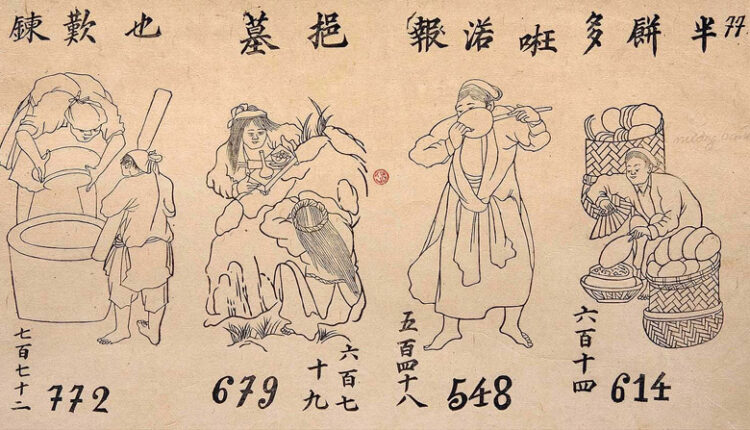 77.
半餅多
渃報
挹墓
也歎鍊
六百十四
614
五百四十八
548
六百七
十九
679
七百七十二
772